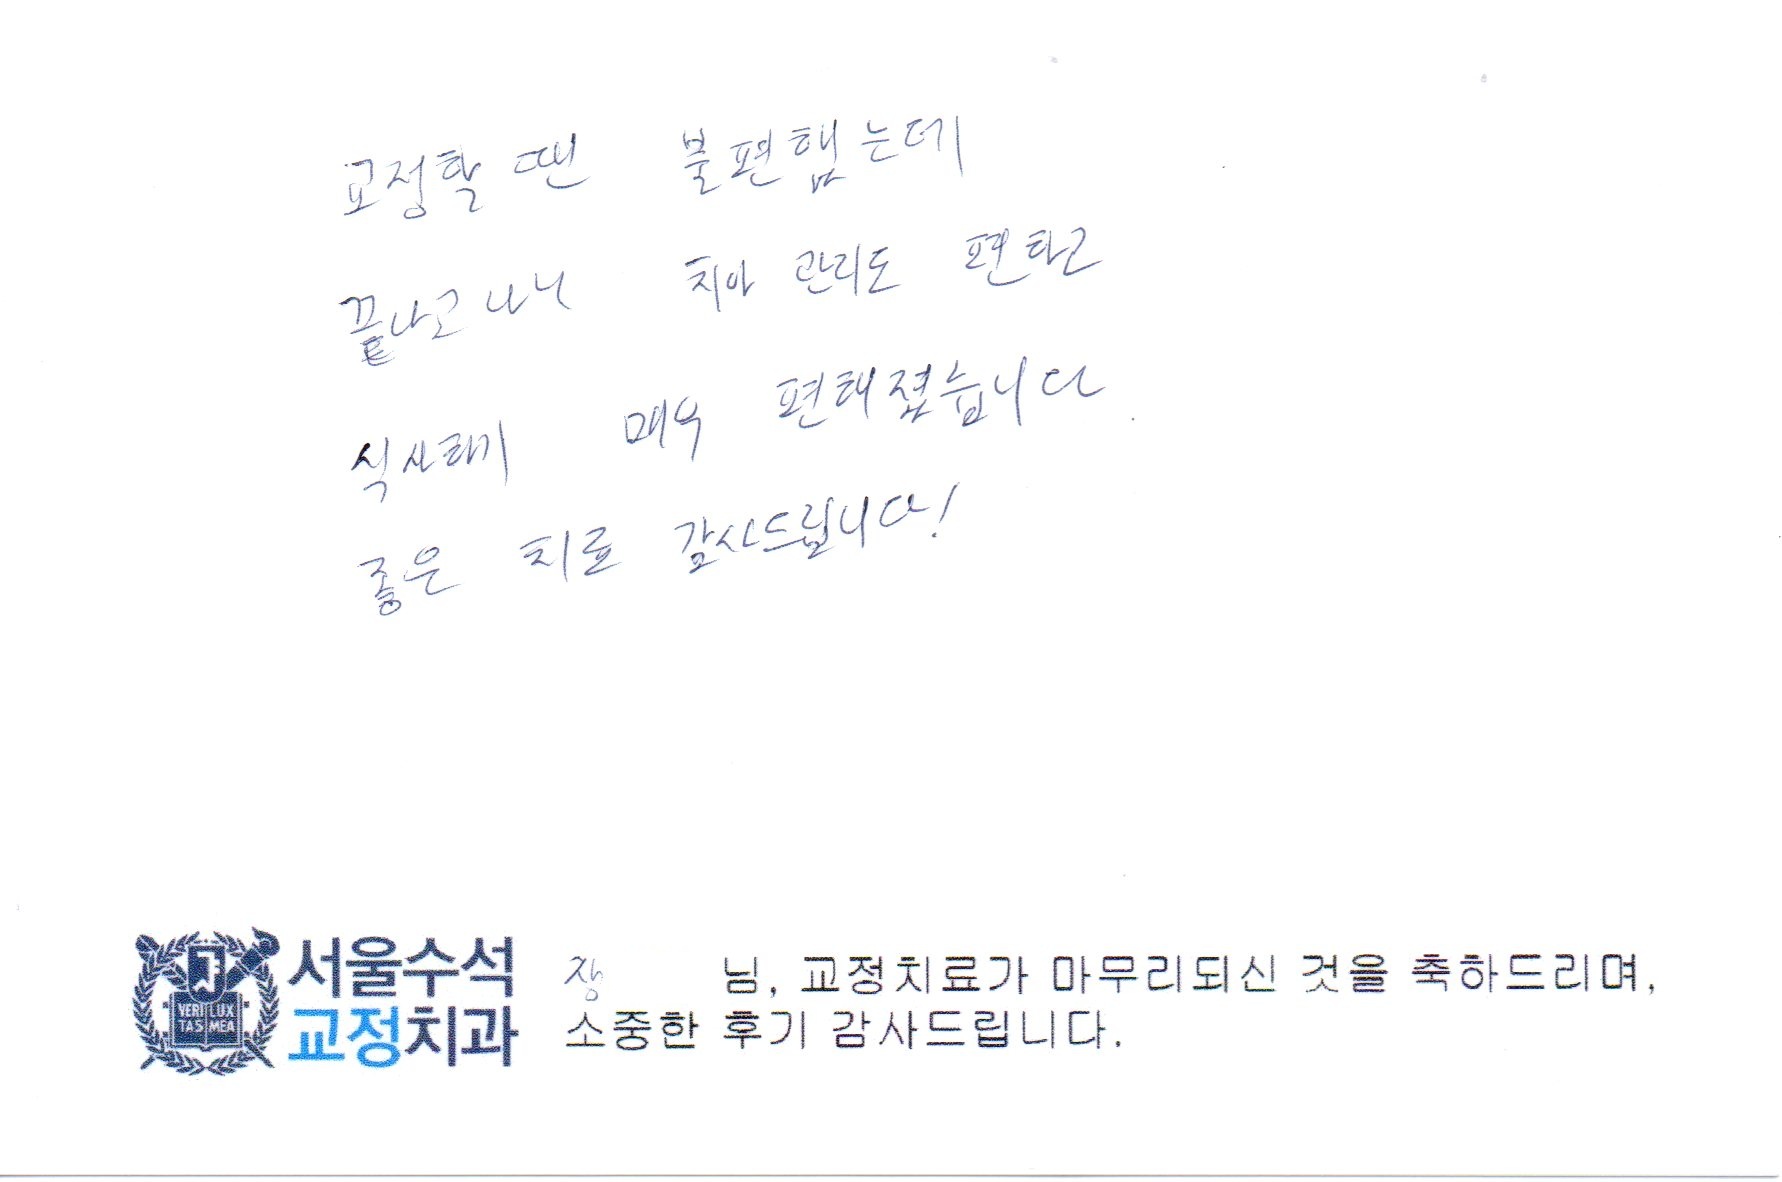 교정할 땐 불편했는데
끝나고 나니 치아 관리도 편하고
식사하기 매우 편해졌습니다
좋은 치료 감사드립니다!
서울수석
교정치과
VERI LUX
TAS MEA
장 님, 교정치료가 마무리되신 것을 축하드리며,
소중한 후기 감사드립니다.